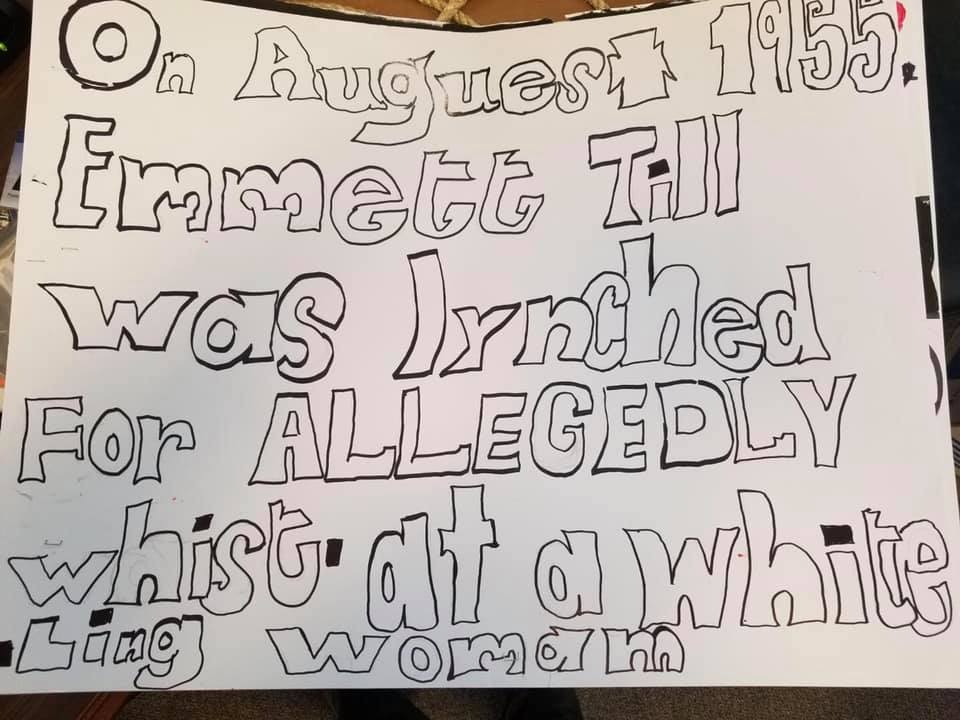 On Auguest 1955.
Emmett Till
was lynched
For ALLEGEDLY
whist- at a white
-Ling woman